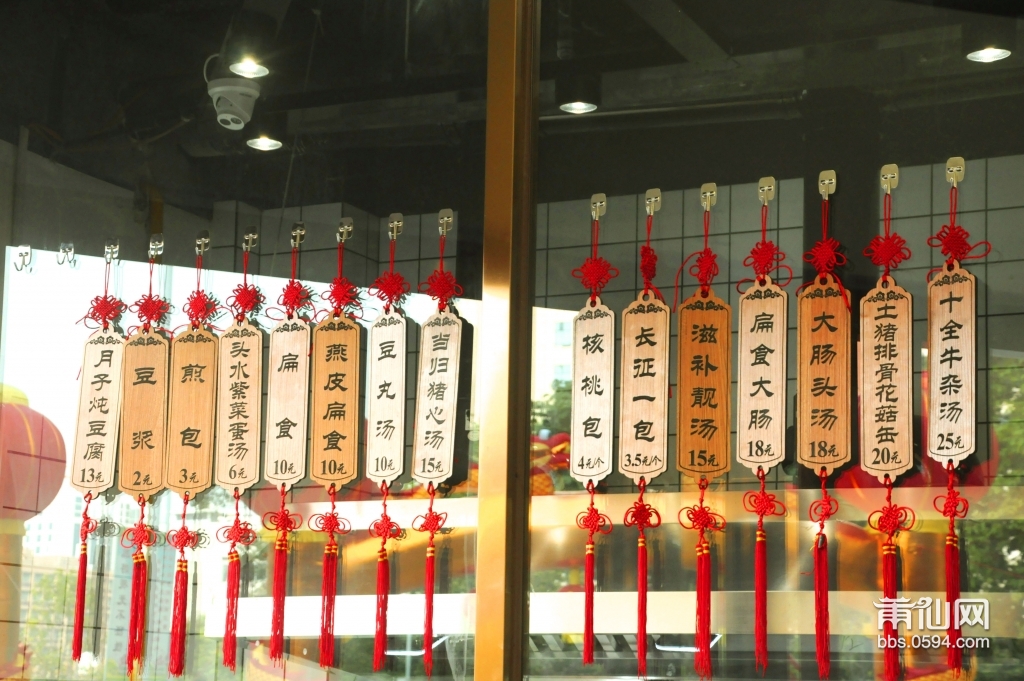 月子炖豆腐
13元
豆浆
2元
煎包
3元
头水紫菜蛋汤
6元
扁食
10元
燕皮扁食
10元
豆丸汤
10元
当归猪心汤
15元
核桃包
4元/个
长征一包
3.5元/个
滋补靓汤
15元
扁食大肠
18元
大肠头汤
18元
土猪排骨花菇缶
20元
十全牛杂汤
25元
莆仙网
bbs.0594.com